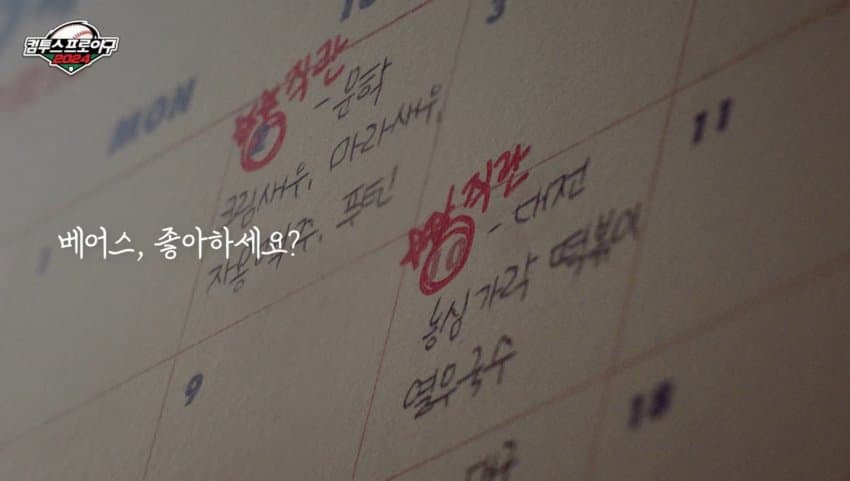 컴투스프로야구
2024
MON
3
직관
2
-문학
크림새우, 마라새우,
푸틴
베어스, 좋아하세요?
직관
10
-대전
농심가락 떡볶이
열무국수
11
9
18
대구